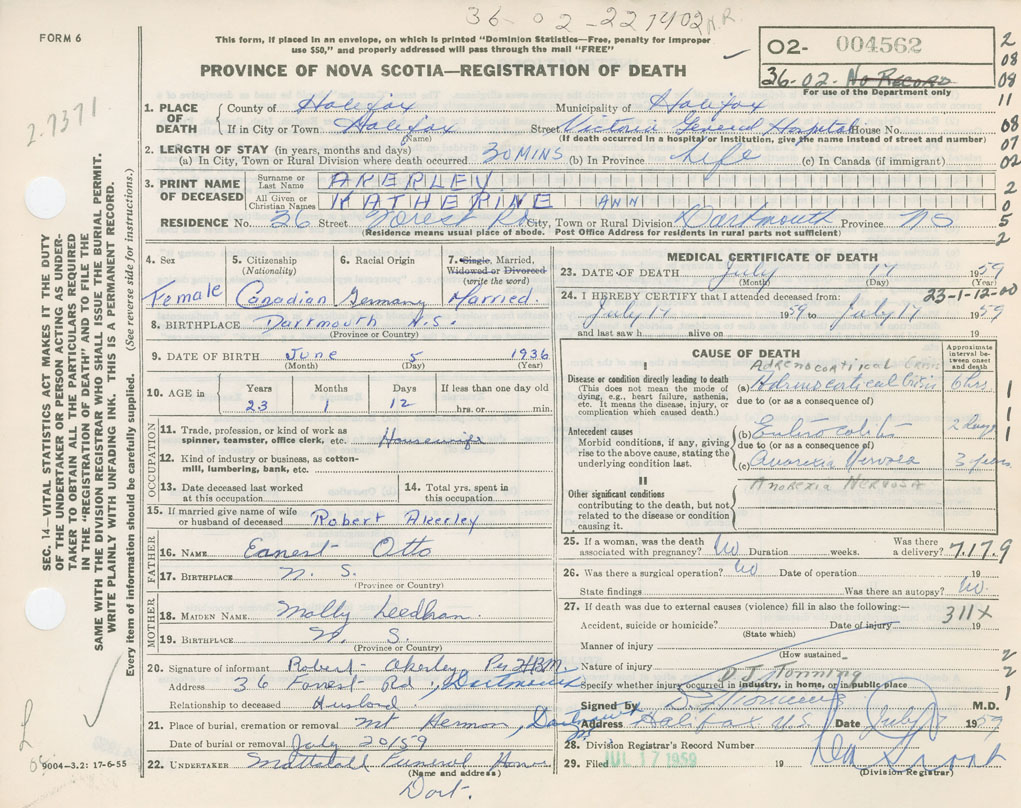 36-02-227402 N.R.
FORM 6
This form, if placed in an envelope, on which is printed "Dominion Statistics—Free, penalty for improper
use $50," and properly addressed will pass through the mail "FREE"
PROVINCE OF NOVA SCOTIA—REGISTRATION OF DEATH
O2- 004562
36-02- No Record
For use of the Department only
2
08
09
11
08
07
02
2
0
5
2
2.7371
1. PLACE OF DEATH
County of Halifax Municipality of Halifax
If in City or Town Halifax Street Victoria General Hospital House No.
(Name) (If death occurred in a hospital or institution, give the name instead of street and number)
2. LENGTH OF STAY (in years, months and days)
(a) In City, Town or Rural Division where death occurred 30 MINS (b) In Province Life (c) In Canada (if immigrant)
3. PRINT NAME OF DECEASED
Surname or Last Name AKERLEY
All Given or Christian Names KATHERINE ANN
RESIDENCE No. 36 Street Forest Rd City, Town or Rural Division Dartmouth Province NS
(Residence means usual place of abode. Post Office Address for residents in rural parts not sufficient)
SEC. 14—VITAL STATISTICS ACT MAKES IT THE DUTY
OF THE UNDERTAKER OR PERSON ACTING AS UNDER-
TAKER TO OBTAIN ALL THE PARTICULARS REQUIRED
IN THE "REGISTRATION OF DEATH" AND TO FILE THE
SAME WITH THE DIVISION REGISTRAR WHO SHALL ISSUE THE BURIAL PERMIT.
WRITE PLAINLY WITH UNFADING INK. THIS IS A PERMANENT RECORD.
Every item of information should be carefully supplied. (See reverse side for instructions.)
4. Sex Female
5. Citizenship (Nationality) Canadian
6. Racial Origin Germany
7. Single, Married, Widowed or Divorced (write the word) Married.
8. BIRTHPLACE Dartmouth N.S.
(Province or Country)
9. DATE OF BIRTH June 5 1936
(Month) (Day) (Year)
10. AGE in Years 23 Months 1 Days 12 If less than one day old hrs. or min.
OCCUPATION
11. Trade, profession, or kind of work as spinner, teamster, office clerk, etc. Housewife
12. Kind of industry or business, as cotton-mill, lumbering, bank, etc.
13. Date deceased last worked at this occupation
14. Total yrs. spent in this occupation
15. If married give name of wife or husband of deceased Robert Akerley
FATHER
16. NAME Earnest Otto
17. BIRTHPLACE N. S.
(Province or Country)
MOTHER
18. MAIDEN NAME Molly
19. BIRTHPLACE N. S.
(Province or Country)
20. Signature of informant Robert Akerley Per H.B.M.
Address 36 Forrest Rd, Dartmouth
Relationship to deceased Husband.
21. Place of burial, cremation or removal Mt Hermon, Dartmouth
Date of burial or removal July 20/59
22. UNDERTAKER Mattatall Funeral Home
(Name and address)
Dart.
9004-3.2: 17-6-55
MEDICAL CERTIFICATE OF DEATH
23. DATE OF DEATH July 17 1959
(Month) (Day) (Year)
24. I HEREBY CERTIFY that I attended deceased from: 23-1-12-00
July 17 1959 to July 17 1959
and last saw h alive on 19
CAUSE OF DEATH
Approximate interval between onset and death
I
Adrenocortical Crisis
Disease or condition directly leading to death (a) Adrenocortical Crisis 6 hrs
(This does not mean the mode of dying, e.g., heart failure, asthenia, etc. It means the disease, injury, or complication which caused death.)
due to (or as a consequence of)
Antecedent causes (b) Enterocolitis 2 days
Morbid conditions, if any, giving rise to the above cause, stating the underlying condition last.
due to (or as a consequence of)
(c) Anorexia Nervosa 3 years
Anorexia Nervosa
II
Other significant conditions contributing to the death, but not related to the disease or condition causing it.
1
1
1
1
25. If a woman, was the death associated with pregnancy? No Duration weeks. Was there a delivery?
7.17.9
26. Was there a surgical operation? No Date of operation 19
State findings Was there an autopsy? No.
27. If death was due to external causes (violence) fill in also the following:—
311X
Accident, suicide or homicide? Date of injury 19
(State which)
Manner of injury
(How sustained)
Nature of injury
Specify whether injury occurred in industry, in home, or in public place
2
2
1
Signed by M.D.
Address Halifax N.S. Date July 17 1959
28. Division Registrar's Record Number
29. Filed JUL 17 1959 19
(Division Registrar)